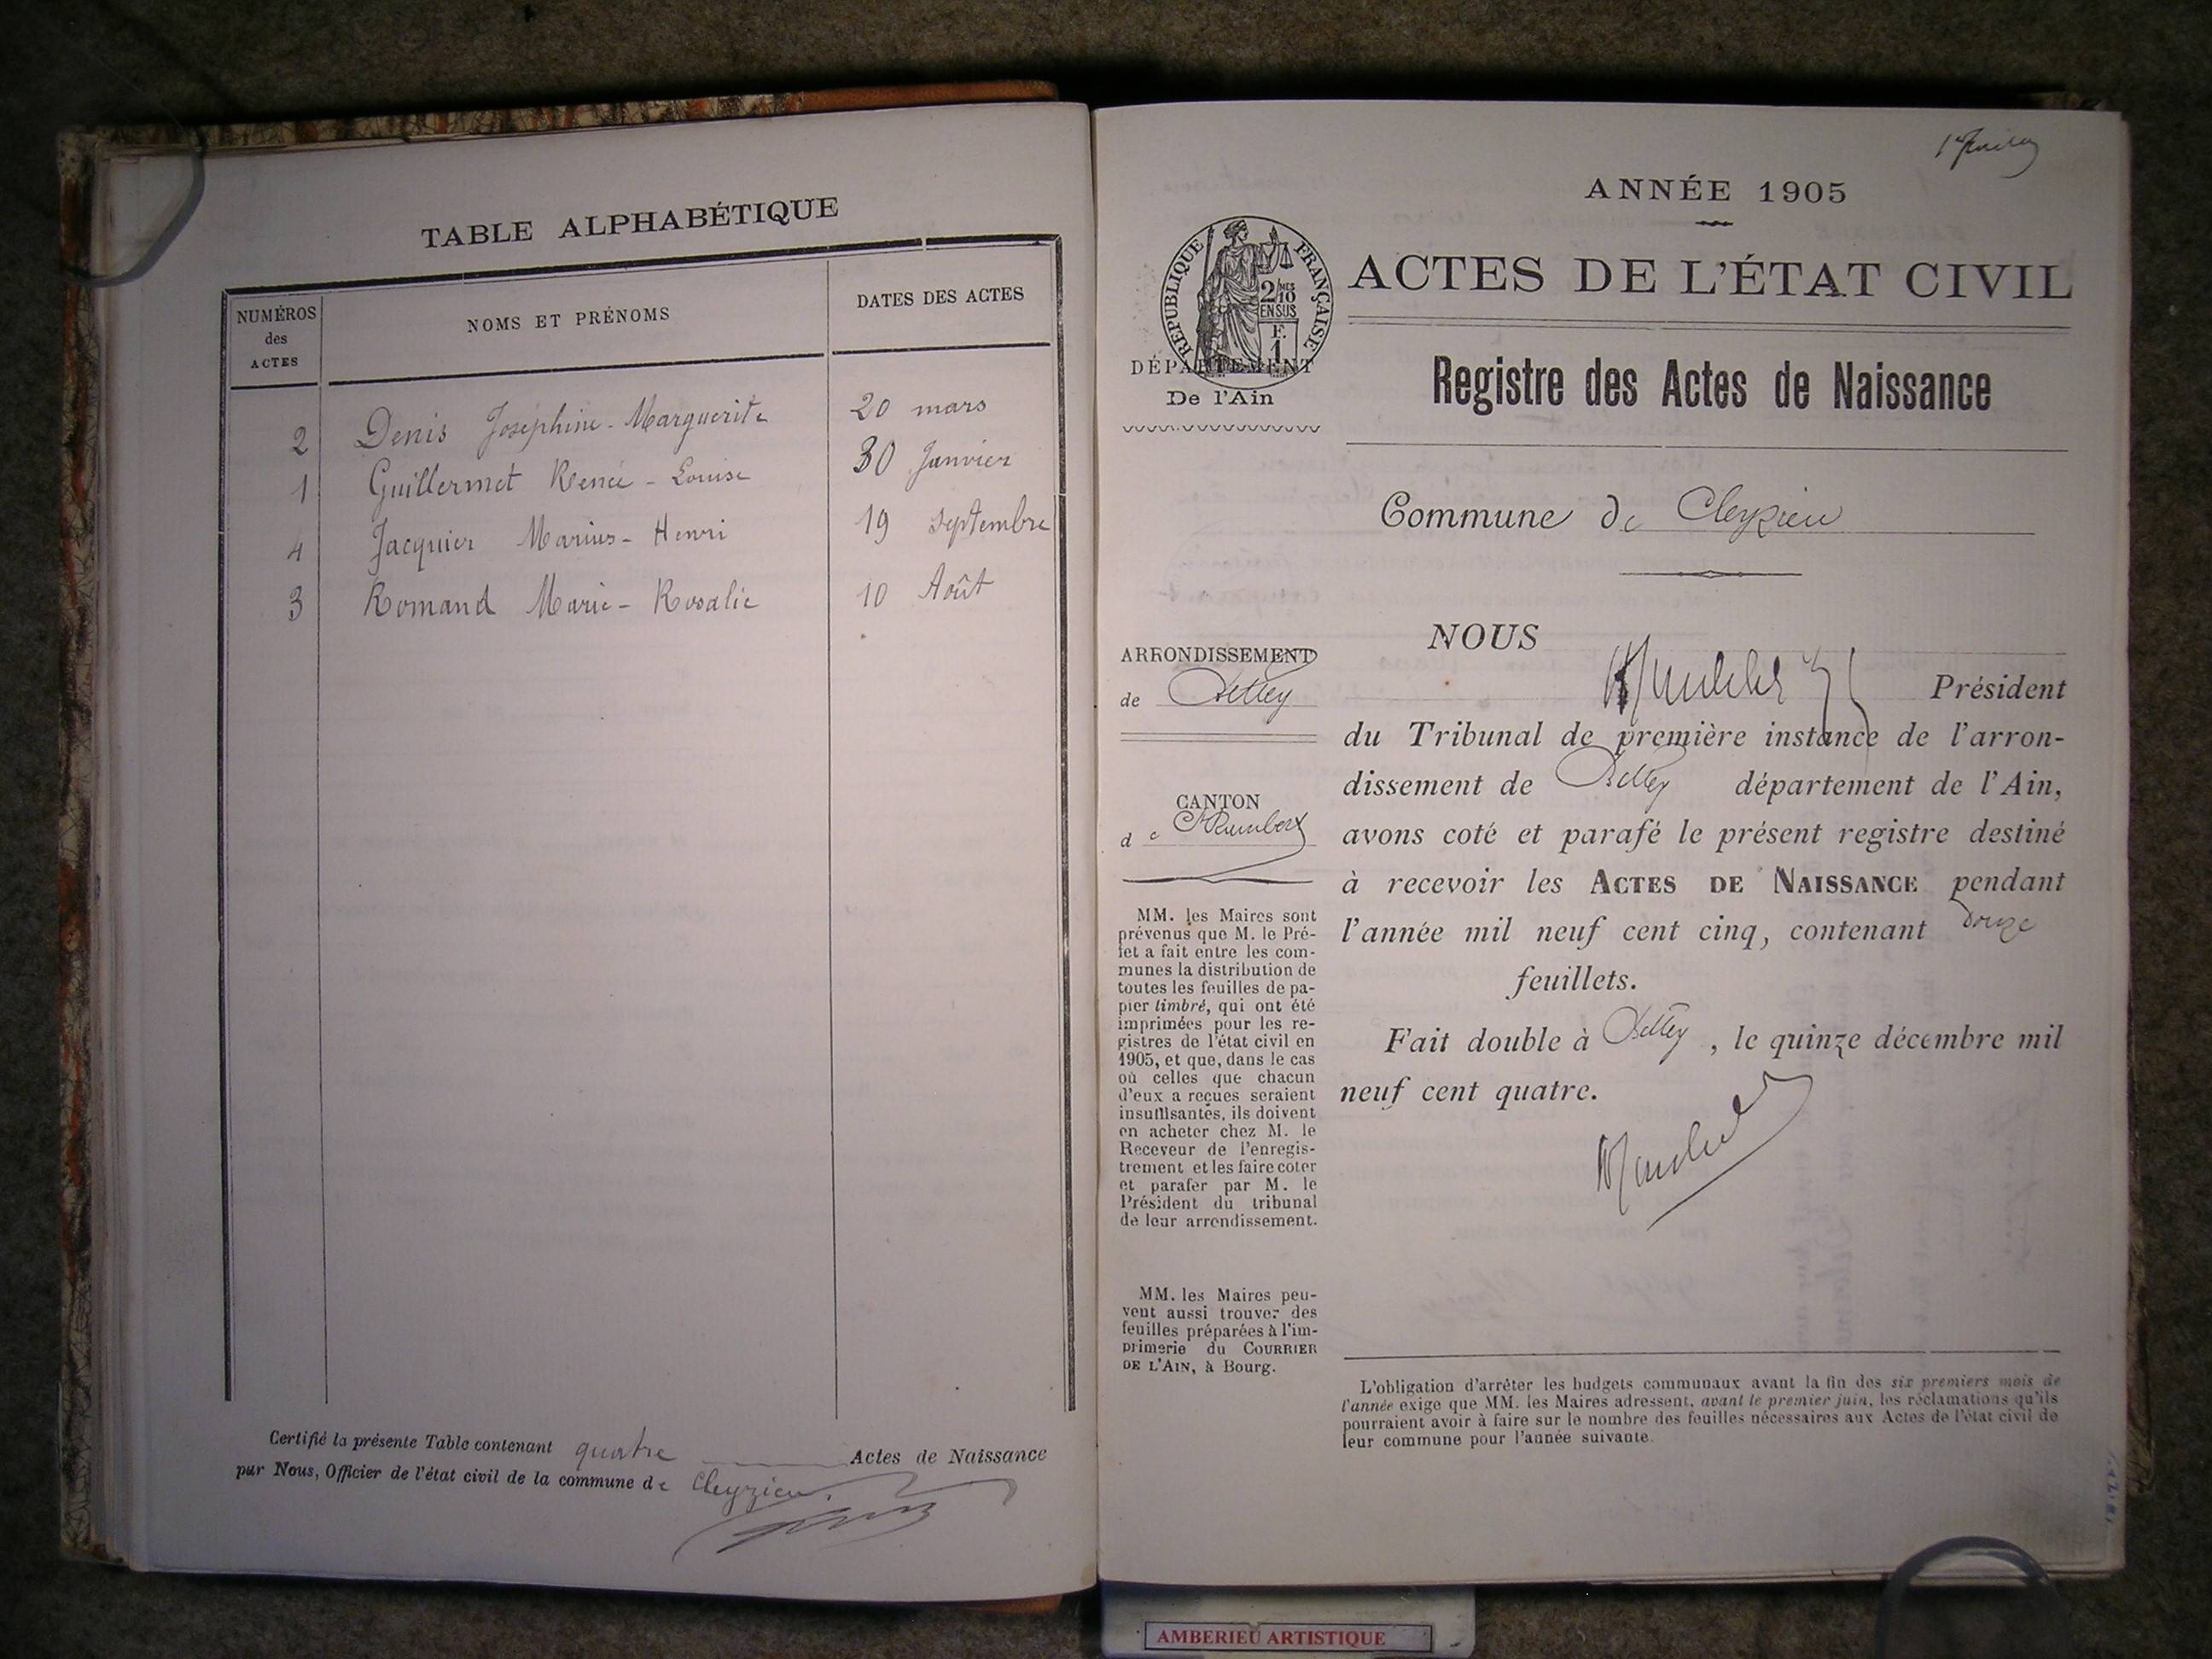 TABLE ALPHABÉTIQUE
NUMÉROS
des
ACTES
NOMS ET PRÉNOMS
DATES DES ACTES
2 Denis Joséphine-Marguerite 20 mars
1 Guillermet Renée-Louise 30 Janvier
4 Jacquier Marius-Henri 19 septembre
3 Romand Marie-Rosalie 10 Août
Certifié la présente Table contenant quatre Actes de Naissance
par Nous, Officier de l'état civil de la commune de Cleyzieu.
ANNÉE 1905
ACTES DE L'ÉTAT CIVIL
RÉPUBLIQUE FRANÇAISE
2/10 MES
EN SUS
F.
1
DÉPARTEMENT
De l'Ain
Registre des Actes de Naissance
Commune de Cleyzieu
ARRONDISSEMENT
de Belley
CANTON
de St Rambert
MM. les Maires sont
prévenus que M. le Pré-
fet a fait entre les com-
munes la distribution de
toutes les feuilles de pa-
pier timbré, qui ont été
imprimées pour les re-
gistres de l'état civil en
1905, et que, dans le cas
où celles que chacun
d'eux a reçues seraient
insuffisantes, ils doivent
en acheter chez M. le
Receveur de l'enregis-
trement et les faire coter
et parafer par M. le
Président du tribunal
de leur arrondissement.
MM. les Maires peu-
vent aussi trouver des
feuilles préparées à l'im-
primerie du COURRIER
DE L'AIN, à Bourg.
NOUS
Président
du Tribunal de première instance de l'arron-
dissement de Belley département de l'Ain,
avons coté et parafé le présent registre destiné
à recevoir les ACTES DE NAISSANCE pendant
l'année mil neuf cent cinq, contenant douze
feuillets.
Fait double à Belley, le quinze décembre mil
neuf cent quatre.
L'obligation d'arrêter les budgets communaux avant la fin des six premiers mois de
l'année exige que MM. les Maires adressent, avant le premier juin, les réclamations qu'ils
pourraient avoir à faire sur le nombre des feuilles nécessaires aux Actes de l'état civil de
leur commune pour l'année suivante.
AMBERIEU ARTISTIQUE